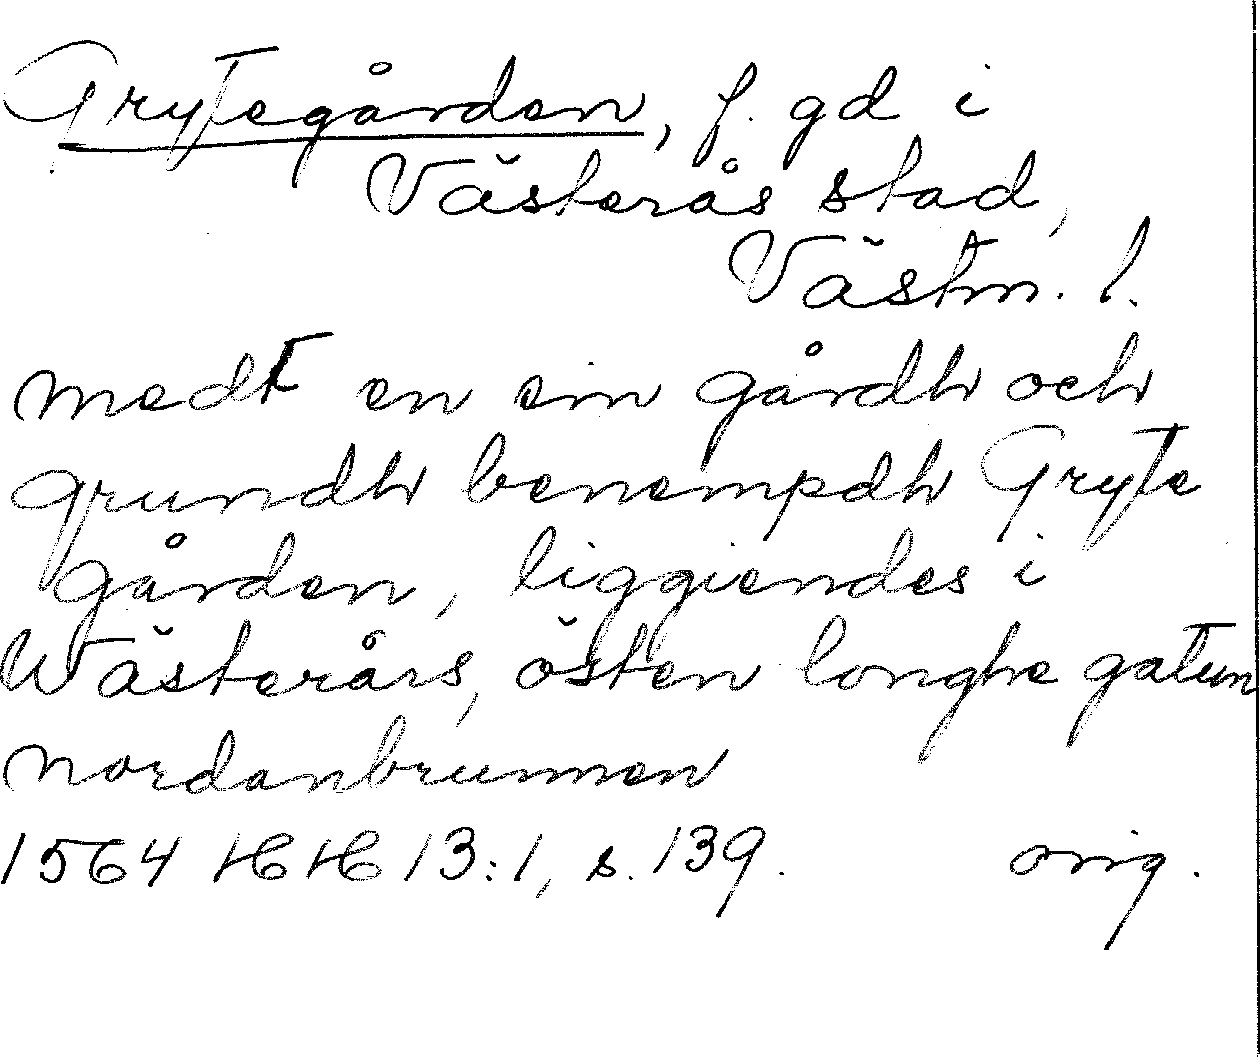 Grytegården, f. gd i
Västerås stad,
Västm. l.
medt en ein gårdh och
grundh benempdh Gryte
gården, liggiendes i
Wästerårs, östen longhe gatun
nordanbrunnen
1564 HH 13:1, s. 139. orig.